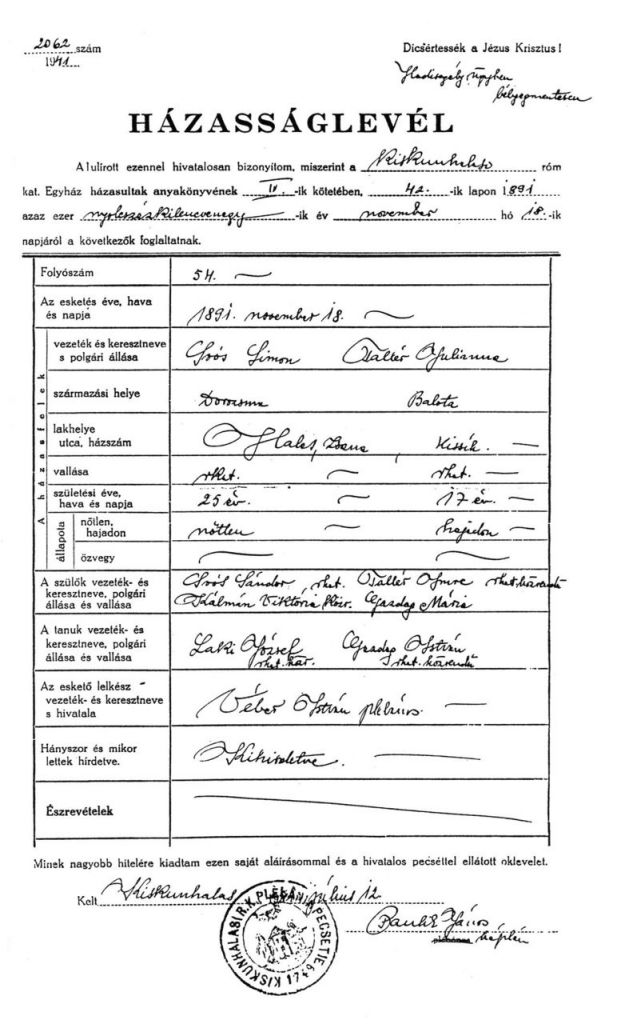 2062 szám
1941
Dicsértessék a Jézus Krisztus!
bélyegmentesen
HÁZASSÁGLEVÉL
Alulírott ezennel hivatalosan bizonyítom, miszerint a Kiskunhalasi róm
kat. Egyház házasultak anyakönyvének IV. -ik kötetében, 42. -ik lapon 1891
azaz ezer nyolcszázkilencvenegy -ik év november hó 18.-ik
napjáról a következők foglaltatnak.
Folyószám 54.
Az esketés éve, hava
és napja 1891. november 18.
A házasfelek
vezeték és keresztneve
s polgári állása Simon Tallér Julianna
származási helye Dorozsma Balota
lakhelye
utca, házszám Halas,
vallása rkat. rkat.
születési éve,
hava és napja 25 év. 17 év.
állapota
nőtlen,
hajadon nőtlen hajadon
özvegy
A szülők vezeték- és
keresztneve, polgári
állása és vallása
Sándor, rkat. Tallér Imre rkat. közrendű
Kálmán Viktória Gazdag Mária
A tanuk vezeték- és
keresztneve, polgári
állása és vallása
Laki József István
rkat. rkat. közrendű
Az eskető lelkész
vezeték- és keresztneve
s hivatala Véber István plébános.
Hányszor és mikor
lettek hirdetve. Kihirdetve.
Észrevételek
Minek nagyobb hitelére kiadtam ezen saját aláírásommal és a hivatalos pecséttel ellátott oklevelet.
Kelt Kiskunhalas július 12
János
káplán